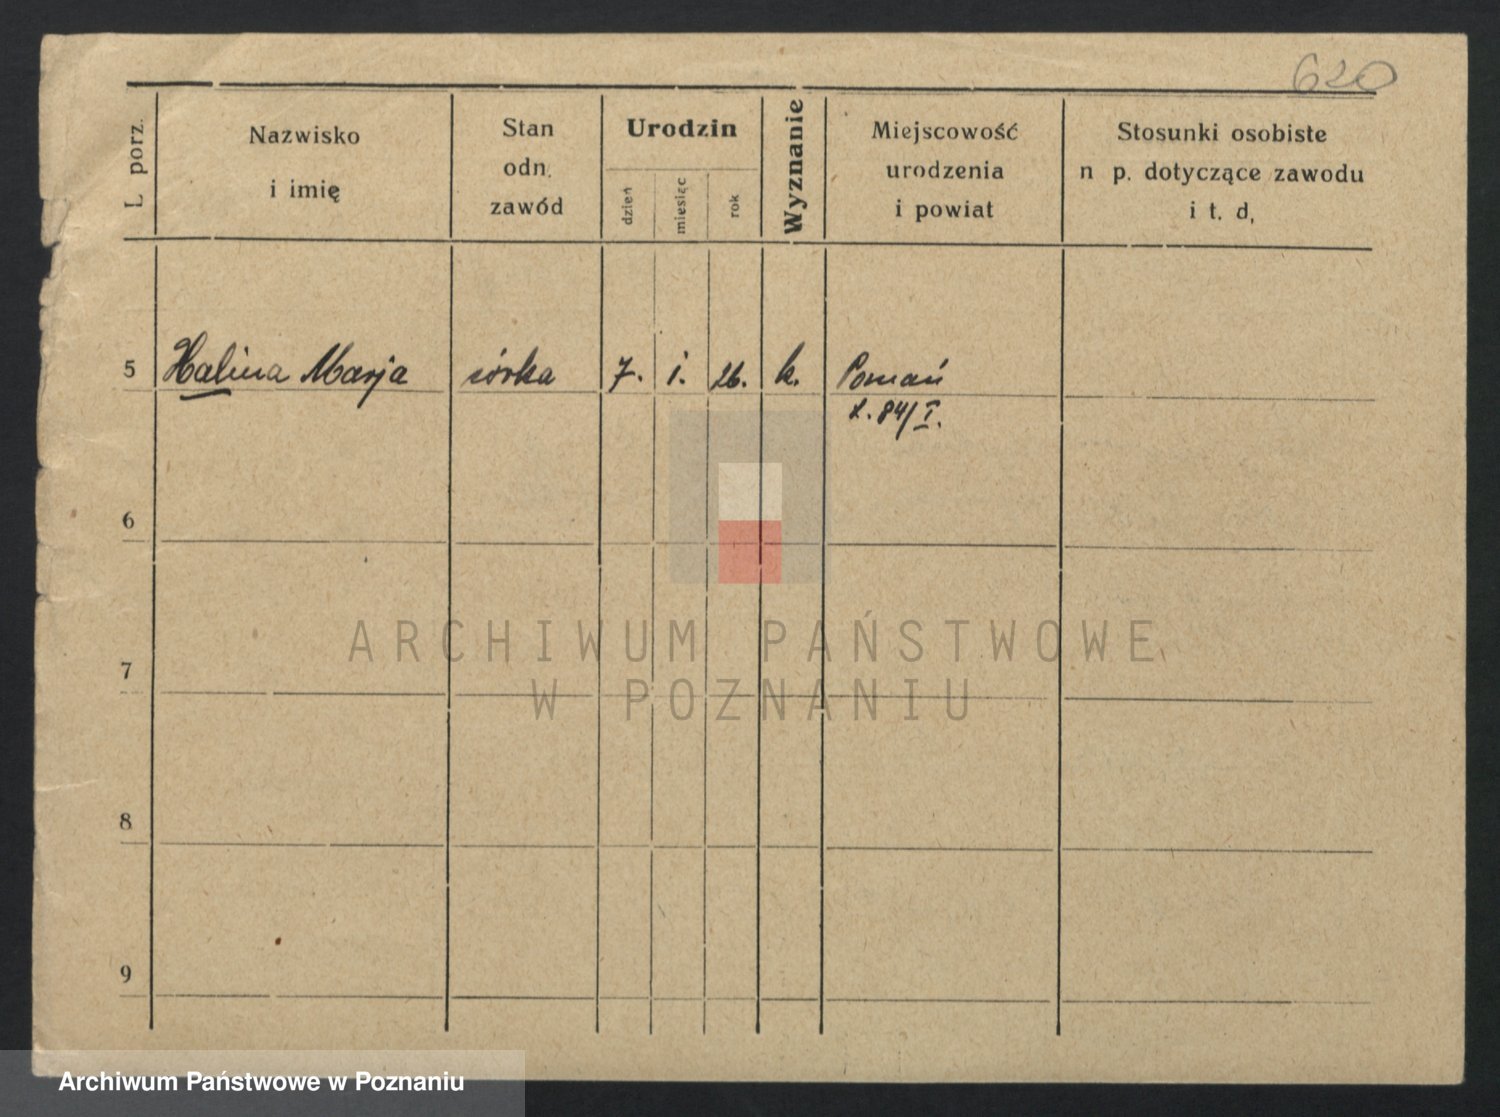 620
L porz.
Nazwisko
i imię
Stan
odn.
zawód
Urodzin
dzień
miesiąc
rok
Wyznanie
Miejscowość
urodzenia
i powiat
Stosunki osobiste
n p. dotyczące zawodu
i t. d,
5 Halina Marja córka 7. i. 26. k. Poznań
84/I.
6
7
8
9
ARCHIWUM PAŃSTWOWE
W POZNANIU
Archiwum Państwowe w Poznaniu